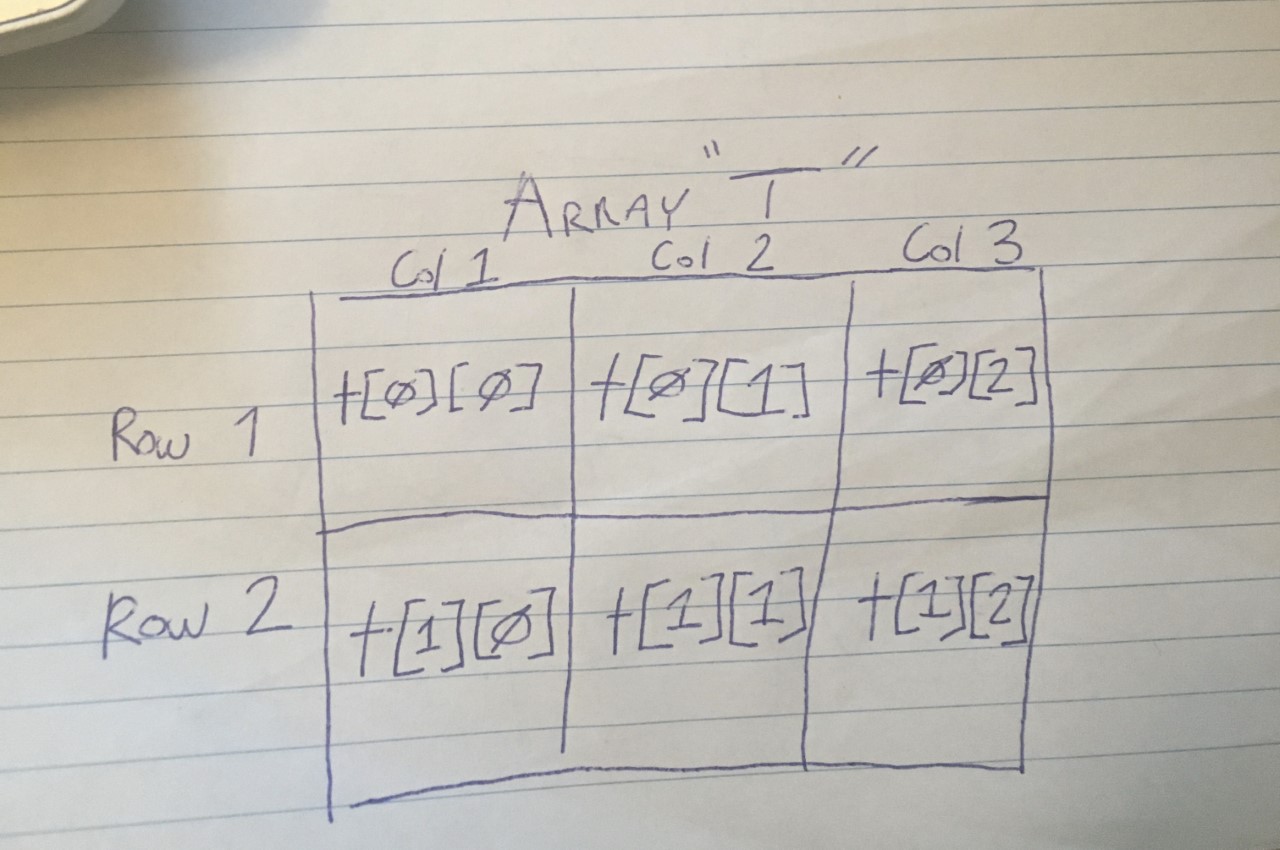 ARRAY "T"
Col 1 Col 2 Col 3
Row 1 t[ø][ø] t[ø][1] t[ø][2]
Row 2 t[1][ø] t[1][1] t[1][2]